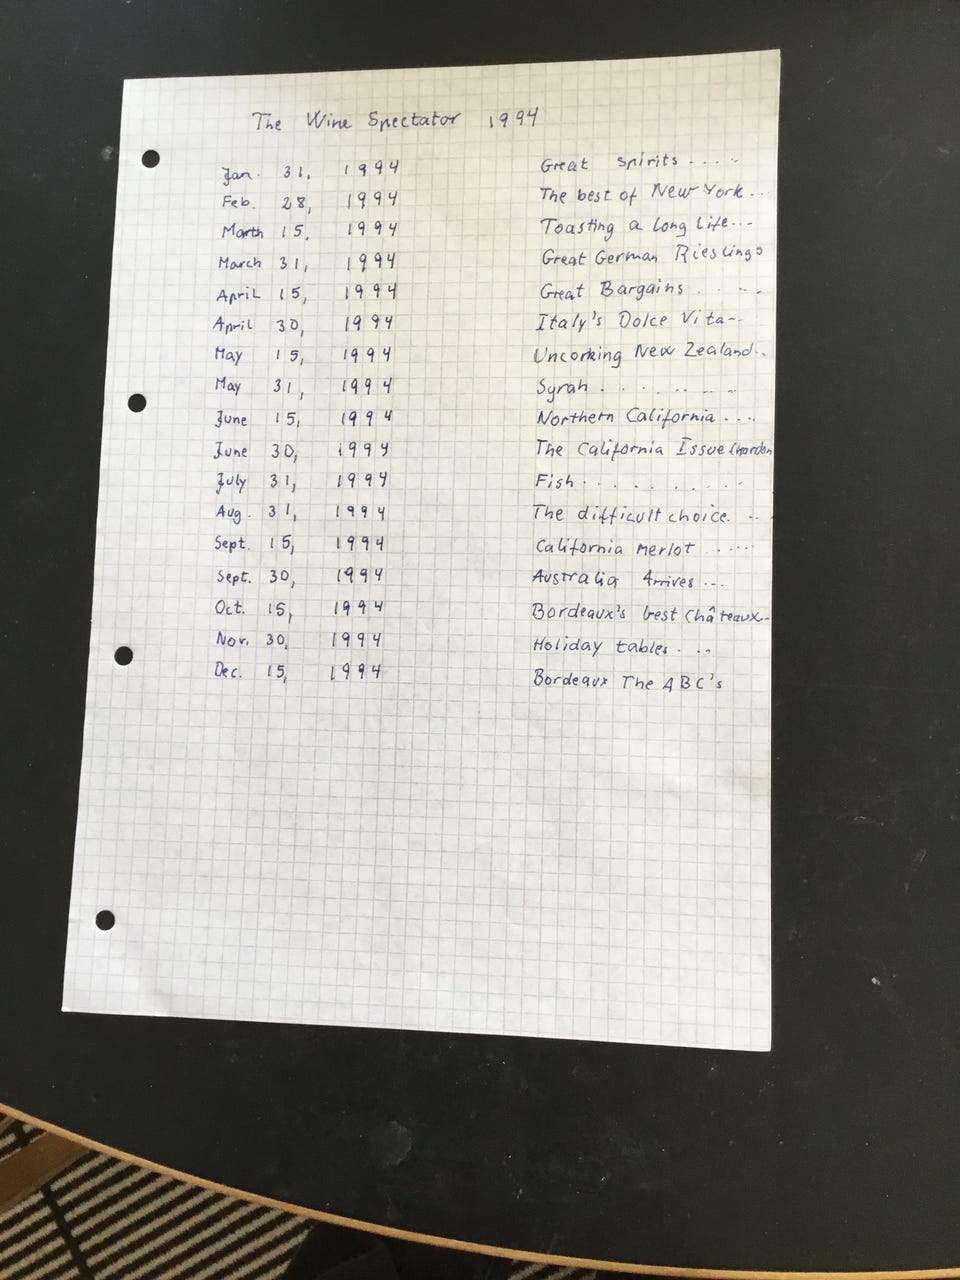 The Wine Spectator 1994
Jan. 31, 1994 Great Spirits . . . .
Feb. 28, 1994 The best of New York...
Marth 15, 1994 Toasting a long Life...
March 31, 1994 Great German Rieslings
April 15, 1994 Great Bargains . . . .
April 30, 1994 Italy's Dolce Vita--
May 15, 1994 Uncorking New Zealand..
May 31, 1994 Syrah . . . . . . .
June 15, 1994 Northern California ....
June 30, 1994 The California Issue Chardon
July 31, 1994 Fish . . . . . . . . .
Aug. 31, 1994 The difficult choice. ..
Sept. 15, 1994 California Merlot .....
Sept. 30, 1994 Australia Arrives ...
Oct. 15, 1994 Bordeaux's best Châteaux--
Nov. 30, 1994 Holiday tables . ..
Dec. 15, 1994 Bordeaux The ABC's